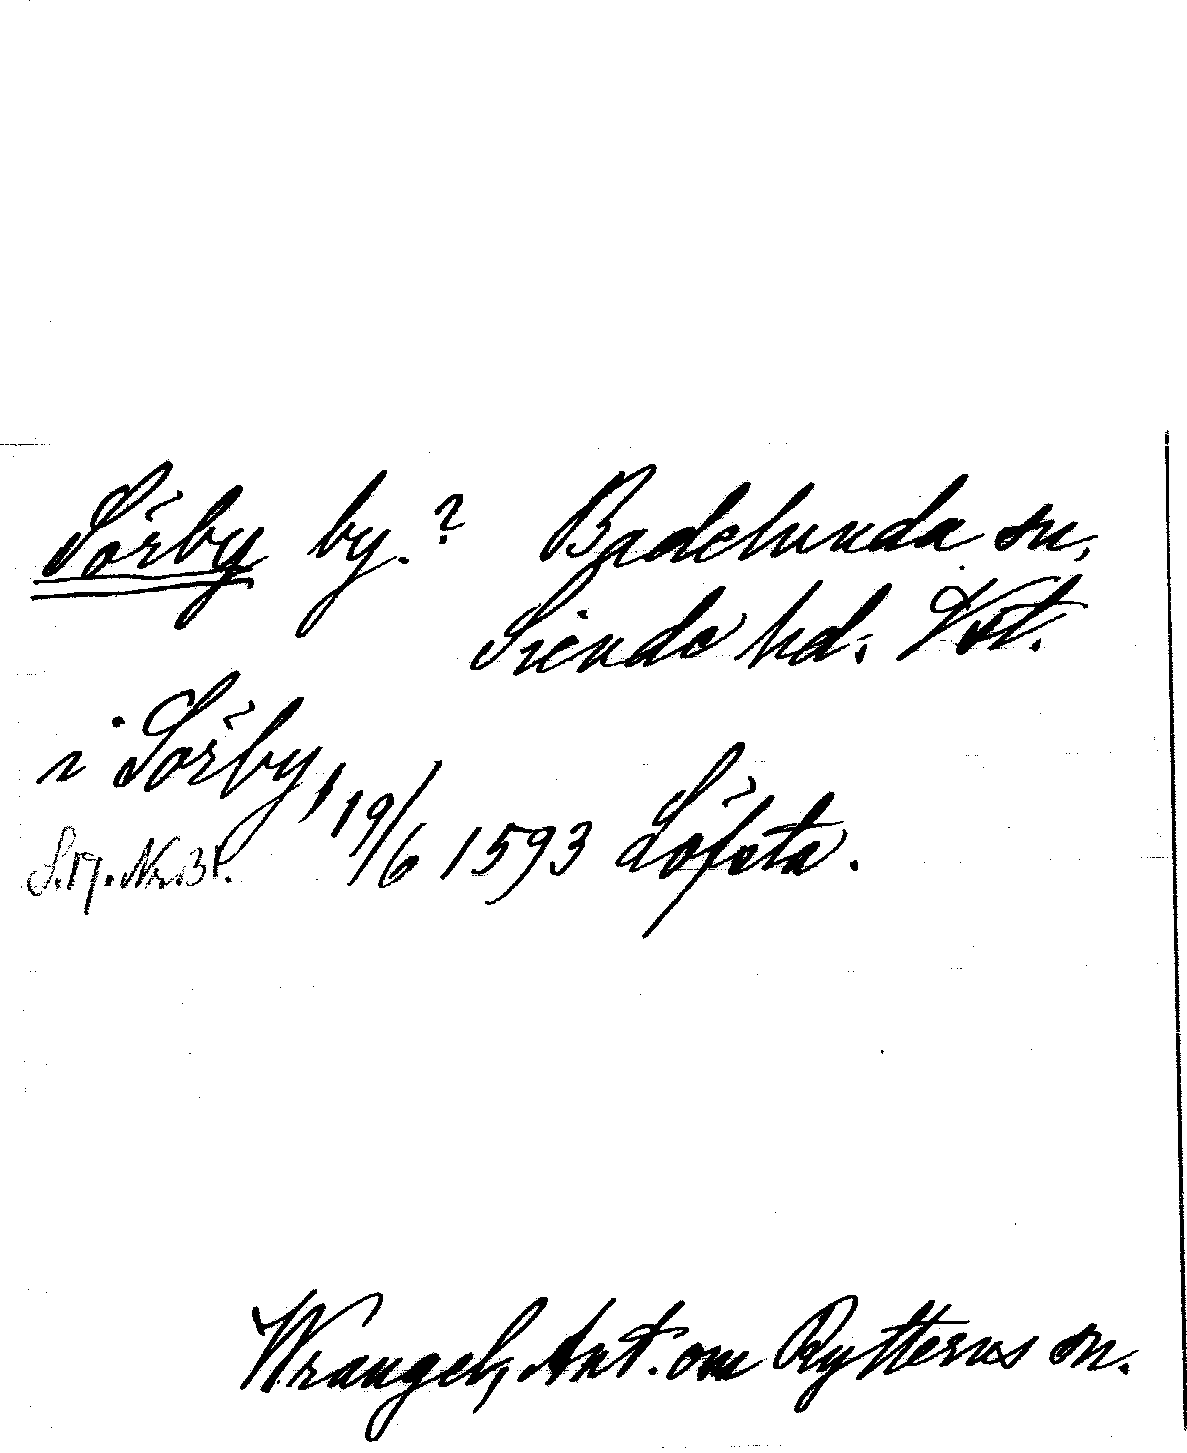 Sörby by.? Badelunda sn,
Siende hd. Vstl.
i Sörby, 19/6 1593 Löfsta.
Wrangel, Ant. om Rytterns sn.